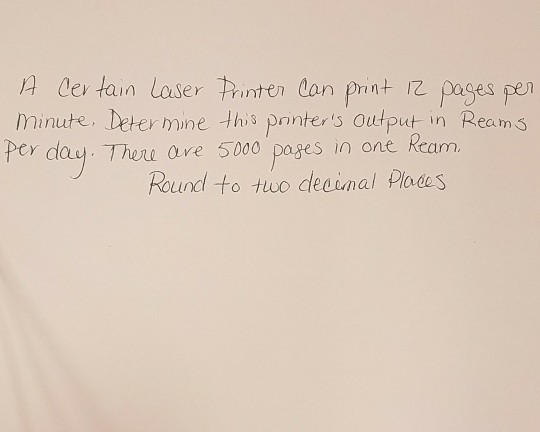 A Certain Laser Printer Can print 12 pages per
minute. Determine this printer's output in Reams
Per day. There are 5000 pages in one Ream.
Round to two decimal Places